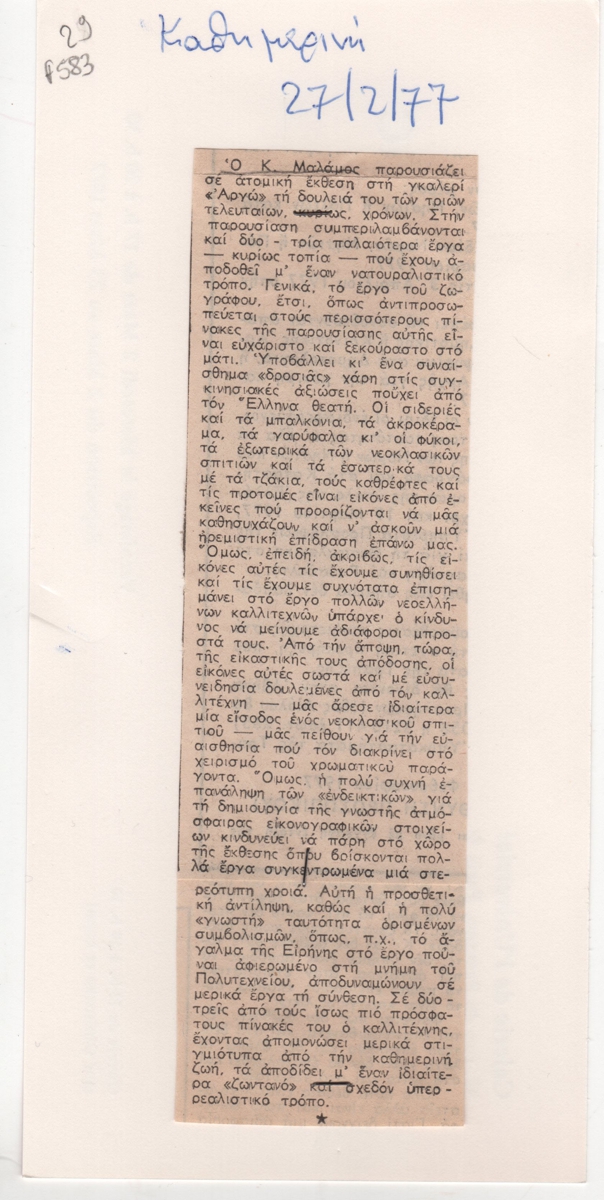 29
φ583
Καθημερινή
27/2/77
Ὁ Κ. Μαλάμος παρουσιάζει
σέ ἀτομική ἔκθεση στή γκαλερί
«Ἀργώ» τή δουλειά του τῶν τριῶν
τελευταίων, κυρίως, χρόνων. Στήν
παρουσίαση συμπεριλαμβάνονται
καί δύο - τρία παλαιότερα ἔργα
— κυρίως τοπία — πού ἔχουν ἀ-
ποδοθεῖ μ' ἕναν νατουραλιστικό
τρόπο. Γενικά, τό ἔργο τοῦ ζω-
γράφου, ἔτσι, ὅπως ἀντιπροσω-
πεύεται στούς περισσότερους πί-
νακες τῆς παρουσίασης αὐτῆς εἶ-
ναι εὐχάριστο καί ξεκούραστο στό
μάτι. Ὑποβάλλει κι' ἕνα συναί-
σθημα «δροσιᾶς» χάρη στίς συγ-
κινησιακές ἀξιώσεις πούχει ἀπό
τόν Ἕλληνα θεατή. Οἱ σιδεριές
καί τά μπαλκόνια, τά ἀκροκέρα-
μα, τά γαρύφαλα κι' οἱ φύκοι,
τά ἐξωτερικά τῶν νεοκλασικῶν
σπιτιῶν καί τά ἐσωτερικά τους
μέ τά τζάκια, τούς καθρέφτες καί
τίς προτομές εἶναι εἰκόνες ἀπό ἐ-
κεῖνες πού προορίζονται νά μᾶς
καθησυχάζουν καί ν' ἀσκοῦν μιά
ἠρεμιστική ἐπίδραση ἐπάνω μας.
Ὅμως, ἐπειδή, ἀκριβῶς, τίς εἰ-
κόνες αὐτές τίς ἔχουμε συνηθίσει
καί τίς ἔχουμε συχνότατα ἐπιση-
μάνει στό ἔργο πολλῶν νεοελλή-
νων καλλιτεχνῶν ὑπάρχει ὁ κίνδυ-
νος νά μείνουμε ἀδιάφοροι μπρο-
στά τους. Ἀπό τήν ἄποψη, τώρα,
τῆς εἰκαστικῆς τους ἀπόδοσης, οἱ
εἰκόνες αὐτές σωστά καί μέ εὐσυ-
νειδησία δουλεμένες ἀπό τόν καλ-
λιτέχνη — μᾶς ἄρεσε ἰδιαίτερα
μία εἴσοδος ἑνός νεοκλασικοῦ σπι-
τιοῦ — μᾶς πείθουν γιά τήν εὐ-
αισθησία πού τόν διακρίνει στό
χειρισμό τοῦ χρωματικοῦ παρά-
γοντα. Ὅμως, ἡ πολύ συχνή ἐ-
πανάληψη τῶν «ἐνδεικτικῶν» γιά
τή δημιουργία τῆς γνωστῆς ἀτμό-
σφαιρας εἰκονογραφικῶν στοιχεί-
ων κινδυνεύει νά πάρη στό χῶρο
τῆς ἔκθεσης ὅπου βρίσκονται πολ-
λά ἔργα συγκεντρωμένα μιά στε-
ρεότυπη χροιά. Αὐτή ἡ προσθετι-
κή ἀντίληψη, καθώς καί ἡ πολύ
«γνωστή» ταυτότητα ὁρισμένων
συμβολισμῶν, ὅπως, π.χ., τό ἄ-
γαλμα τῆς Εἰρήνης στό ἔργο πού-
ναι ἀφιερωμένο στή μνήμη τοῦ
Πολυτεχνείου, ἀποδυναμώνουν σέ
μερικά ἔργα τή σύνθεση. Σέ δύο -
τρεῖς ἀπό τούς ἴσως πιό πρόσφα-
τους πίνακές του ὁ καλλιτέχνης,
ἔχοντας ἀπομονώσει μερικά στι-
γμιότυπα ἀπό τήν καθημερινή
ζωή, τά ἀποδίδει μ' ἕναν ἰδιαίτε-
ρα «ζωντανό» καί σχεδόν ὑπερ-
ρεαλιστικό τρόπο.
★